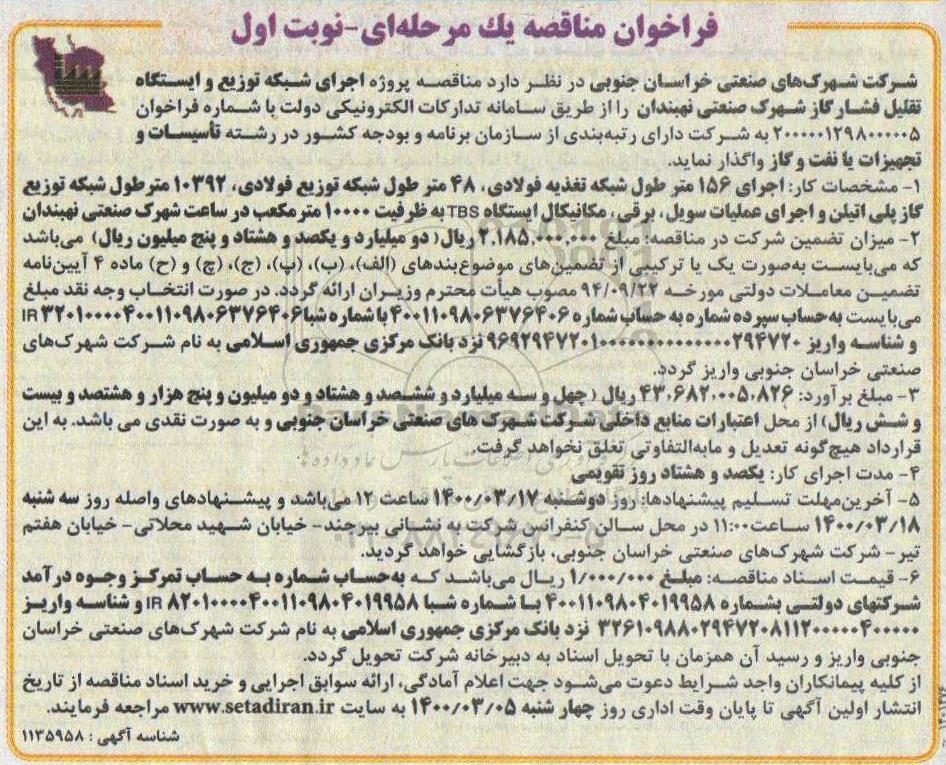 فراخوان مناقصه یك مرحله‌ای-نوبت اول
شرکت شهرک‌های صنعتی خراسان جنوبی در نظر دارد مناقصه پروژه اجرای شبکه توزیع و ایستگاه
تقلیل فشار گاز شهرک صنعتی نهبندان را از طریق سامانه تدارکات الکترونیکی دولت با شماره فراخوان
۲۰۰۰۰۰۱۲۹۸۰۰۰۰۰۵ به شرکت دارای رتبه‌بندی از سازمان برنامه و بودجه کشور در رشته تأسیسات و
تجهیزات یا نفت و گاز واگذار نماید.
۱- مشخصات کار: اجرای ۱۵۶ متر طول شبکه تغذیه فولادی، ۴۸ متر طول شبکه توزیع فولادی، ۱۰۳۹۲ متر طول شبکه توزیع
گاز پلی اتیلن و اجرای عملیات سویل، برقی، مکانیکال ایستگاه TBS به ظرفیت ۱۰۰۰۰ مترمکعب در ساعت شهرک صنعتی نهبندان
۲- میزان تضمین شرکت در مناقصه: مبلغ ۲.۱۸۵.۰۰۰.۰۰۰ ریال( دو میلیارد و یکصد و هشتاد و پنج میلیون ریال) می‌باشد
که می‌بایست به‌صورت یک یا ترکیبی از تضمین‌های موضوع‌بندهای (الف)، (ب)، (پ)، (ج)، (چ) و (ح) ماده ۴ آیین‌نامه
تضمین معاملات دولتی مورخه ۹۴/۰۹/۲۲ مصوب هیأت محترم وزیران ارائه گردد. در صورت انتخاب وجه نقد مبلغ
می‌بایست به‌حساب سپرده شماره به حساب شماره ۴۰۰۱۱۰۹۸۰۶۳۷۶۴۰۶ با شماره شبا IR ۳۲۰۱۰۰۰۰۴۰۰۱۱۰۹۸۰۶۳۷۶۴۰۶
و شناسه واریز نزد بانک مرکزی جمهوری اسلامی به نام شرکت شهرک‌های
صنعتی خراسان جنوبی واریز گردد.
۳- مبلغ برآورد: ۴۳.۶۸۲.۰۰۵.۸۲۶ ریال ( چهل و سه میلیارد و ششصد و هشتاد و دو میلیون و پنج هزار و هشتصد و بیست
و شش ریال) از محل اعتبارات منابع داخلی شرکت شهرک های صنعتی خراسان جنوبی و به صورت نقدی می باشد. به این
قرارداد هیچ‌گونه تعدیل و مابه‌التفاوتی تعلق نخواهد گرفت.
۴- مدت اجرای کار: یکصد و هشتاد روز تقویمی
۵- آخرین‌مهلت تسلیم پیشنهادها: روز دوشنبه ۱۴۰۰/۰۳/۱۷ ساعت ۱۲ می‌باشد و پیشنهادهای واصله روز سه شنبه
۱۴۰۰/۰۳/۱۸ ساعت ۱۱:۰۰ در محل سالن کنفرانس شرکت به نشانی بیرجند- خیابان شهید محلاتی- خیابان هفتم
تیر- شرکت شهرک‌های صنعتی خراسان جنوبی، بازگشایی خواهد گردید.
۶- قیمت اسناد مناقصه: مبلغ ۱/۰۰۰/۰۰۰ ریال می‌باشد که به‌حساب شماره به حساب تمرکز وجوه درآمد
شرکتهای دولتی بشماره ۴۰۰۱۱۰۹۸۰۴۰۱۹۹۵۸ با شماره شبا IR ۸۲۰۱۰۰۰۰۴۰۰۱۱۰۹۸۰۴۰۱۹۹۵۸ و شناسه واریز
نزد بانک مرکزی جمهوری اسلامی به نام شرکت شهرک‌های صنعتی خراسان
جنوبی واریز و رسید آن همزمان با تحویل اسناد به دبیرخانه شرکت تحویل گردد.
از کلیه پیمانکاران واجد شرایط دعوت می‌شود جهت اعلام آمادگی، ارائه سوابق اجرایی و خرید اسناد مناقصه از تاریخ
انتشار اولین آگهی تا پایان وقت اداری روز چهار شنبه ۱۴۰۰/۰۳/۰۵ به سایت www.setadiran.ir مراجعه فرمایند.
شناسه آگهی : ۱۱۳۵۹۵۸